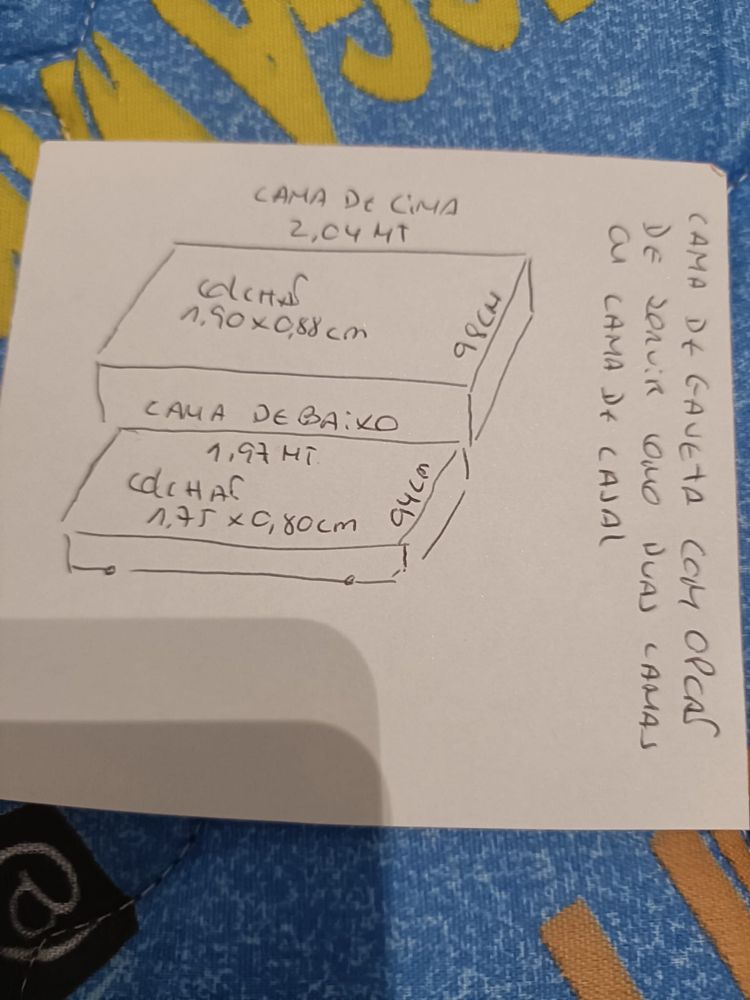 CAMA DE CIMA
2,04 MT
COLCHAS
1,90 x 0,88 cm
98 CM
CAMA DE BAIXO
1,97 MT.
COLCHAS
1,75 x 0,80 cm
94 cm
CAMA DE GAVETA COM OPCAS
DE SERVIR COMO DUAS CAMAS
OU CAMA DE CASAL
@